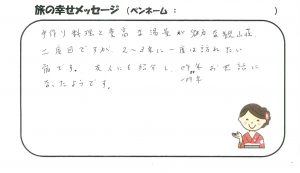 旅の幸せメッセージ (ペンネーム : )
手作り料理と豊富な湯量が魅力な観山荘
二度目ですが、2〜3年に一度は訪れたい
宿です。友人にも紹介し、昨年お世話に
一昨年
なったようです。